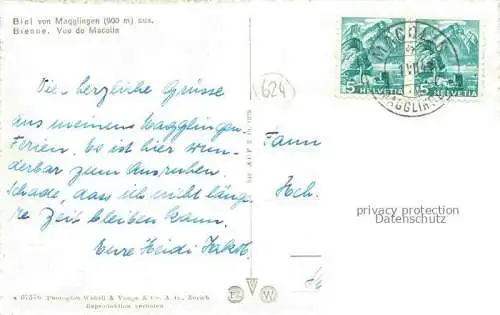 Biel von Magglingen (900 m) aus.
Bienne. Vue de Macolin
Viele herzliche Grüsse
aus meinen Magglingen-
Ferien. Es ist hier wun-
derbar zum Ausruhen.
Schade, dass ich nicht läng-
re Zeit bleiben kann.
Eure Heidi
(624)
5 HELVETIA
5 HELVETIA
MAGGLINGEN
Fam
Hch.
privacy protection
Datenschutz
Photoglob Wehrli & Vouga & Co. A. G., Zürich
Reproduktion verboten
W